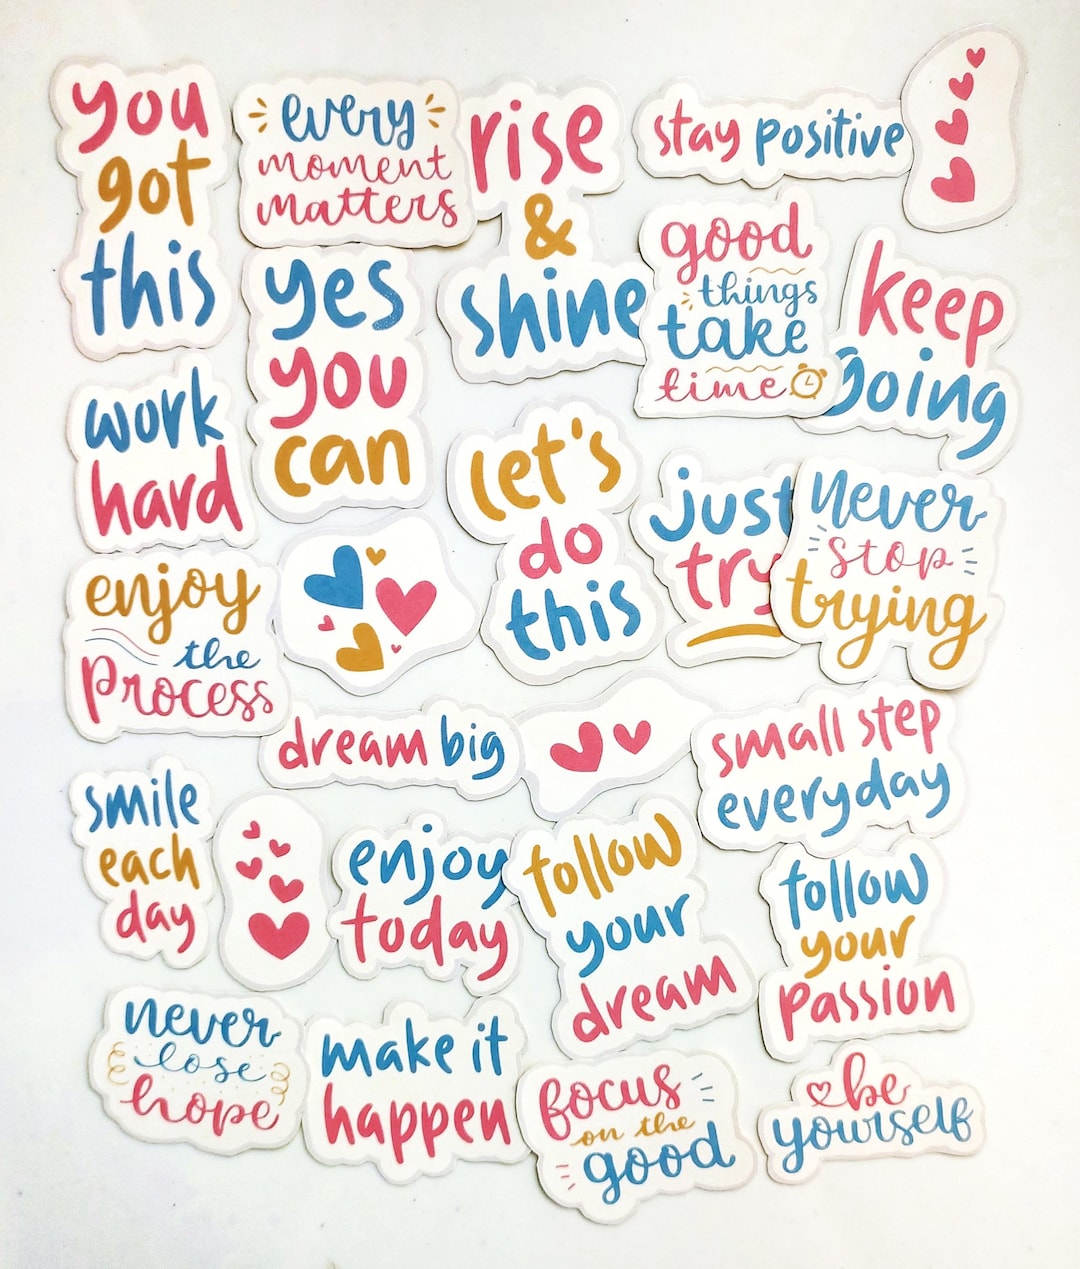 you
got
this
every
moment
matters
rise
&
shine
stay positive
good
things
take
time
keep
going
yes
you
can
work
hard
let's
do
this
just
try
never
stop
trying
enjoy
the
process
dream big
small step
everyday
smile
each
day
enjoy
today
follow
your
dream
follow
your
passion
never
lose
hope
make it
happen
focus
on the
good
be
yourself